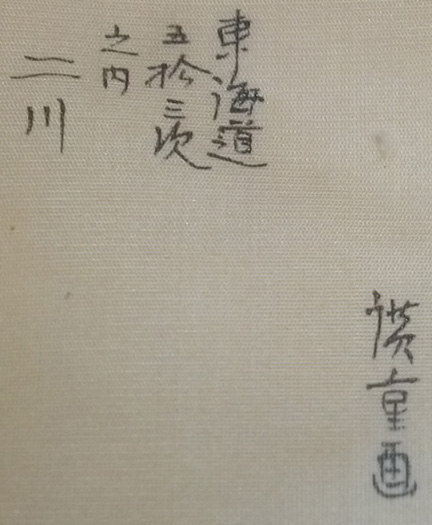 東海道
五拾三次
之内
二川
廣重画